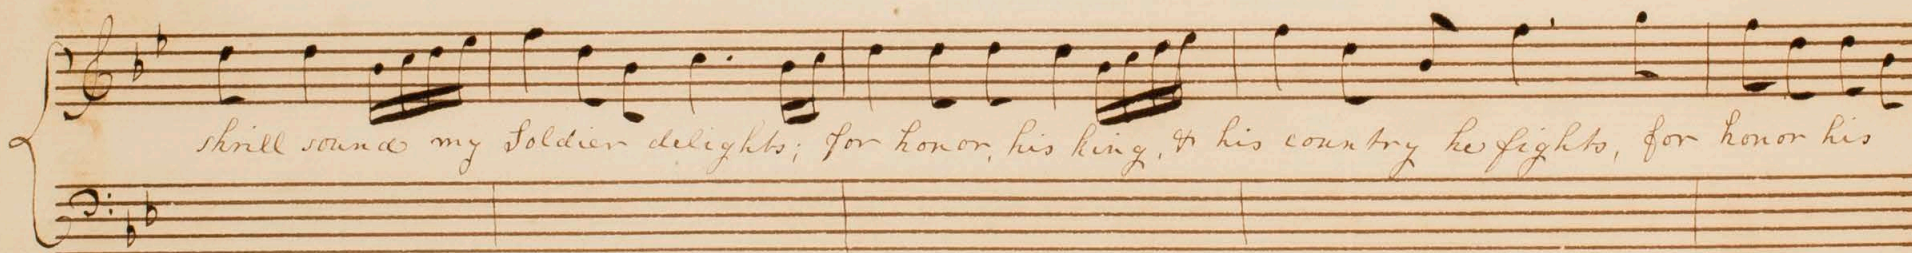 shrill sound my Soldier delights; for honor, his king, & his country he fights, for honor his